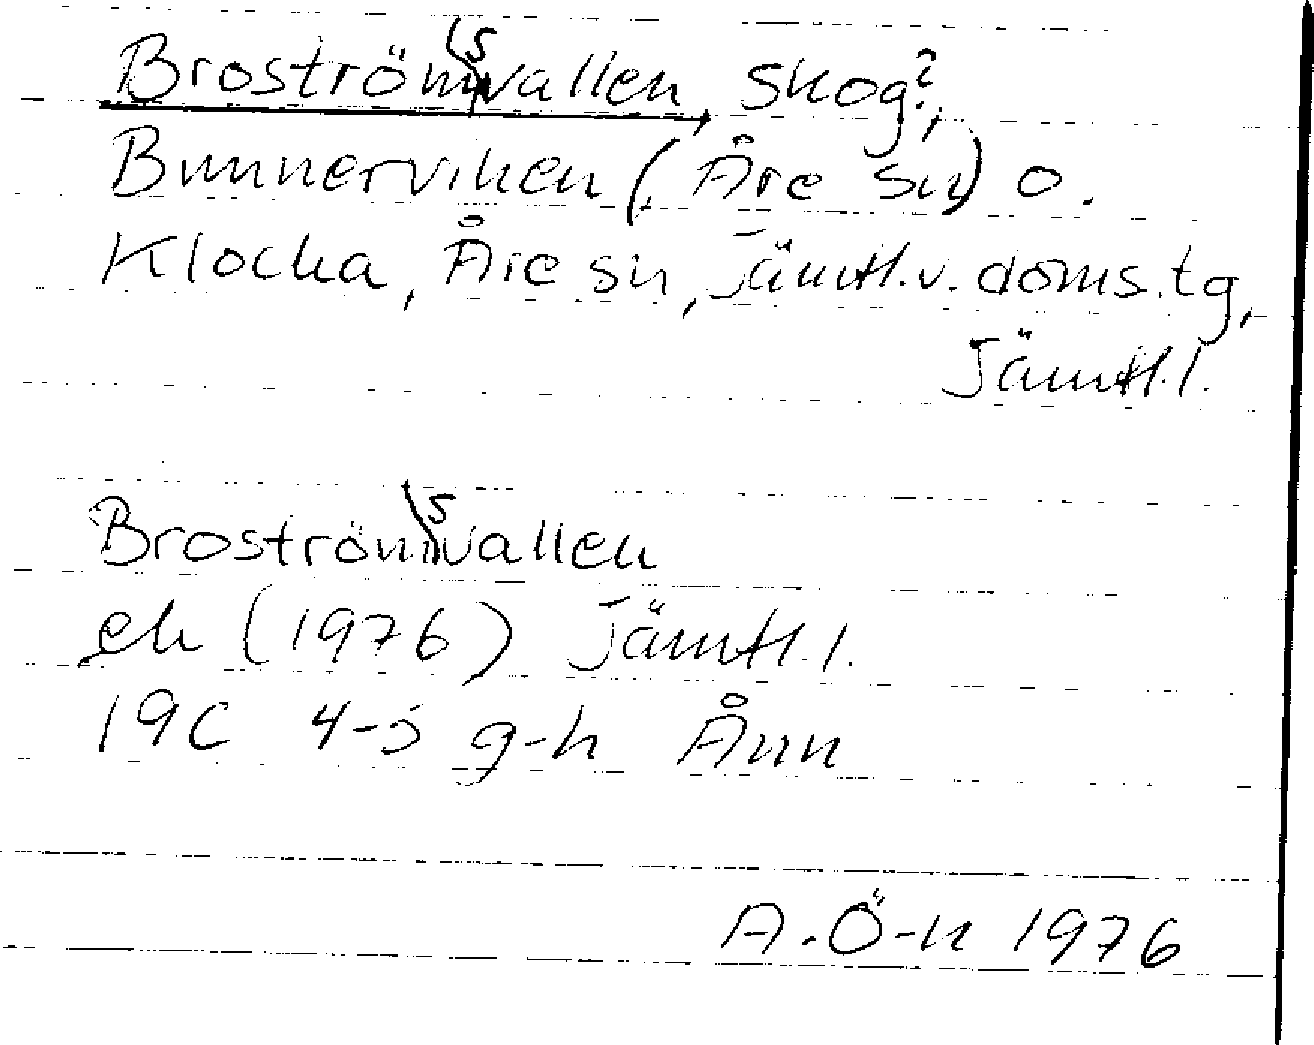 Broströmsvallen, skog?,
Bunnerviken (, Åre sn) o.
Klocka, Åre sn, Jämtl.v.doms.tg,
Jämtl.l.
Broströmsvallen
ek (1976) Jämtl.l.
19C 4-5 g-h Ånn
A.Ö-n 1976